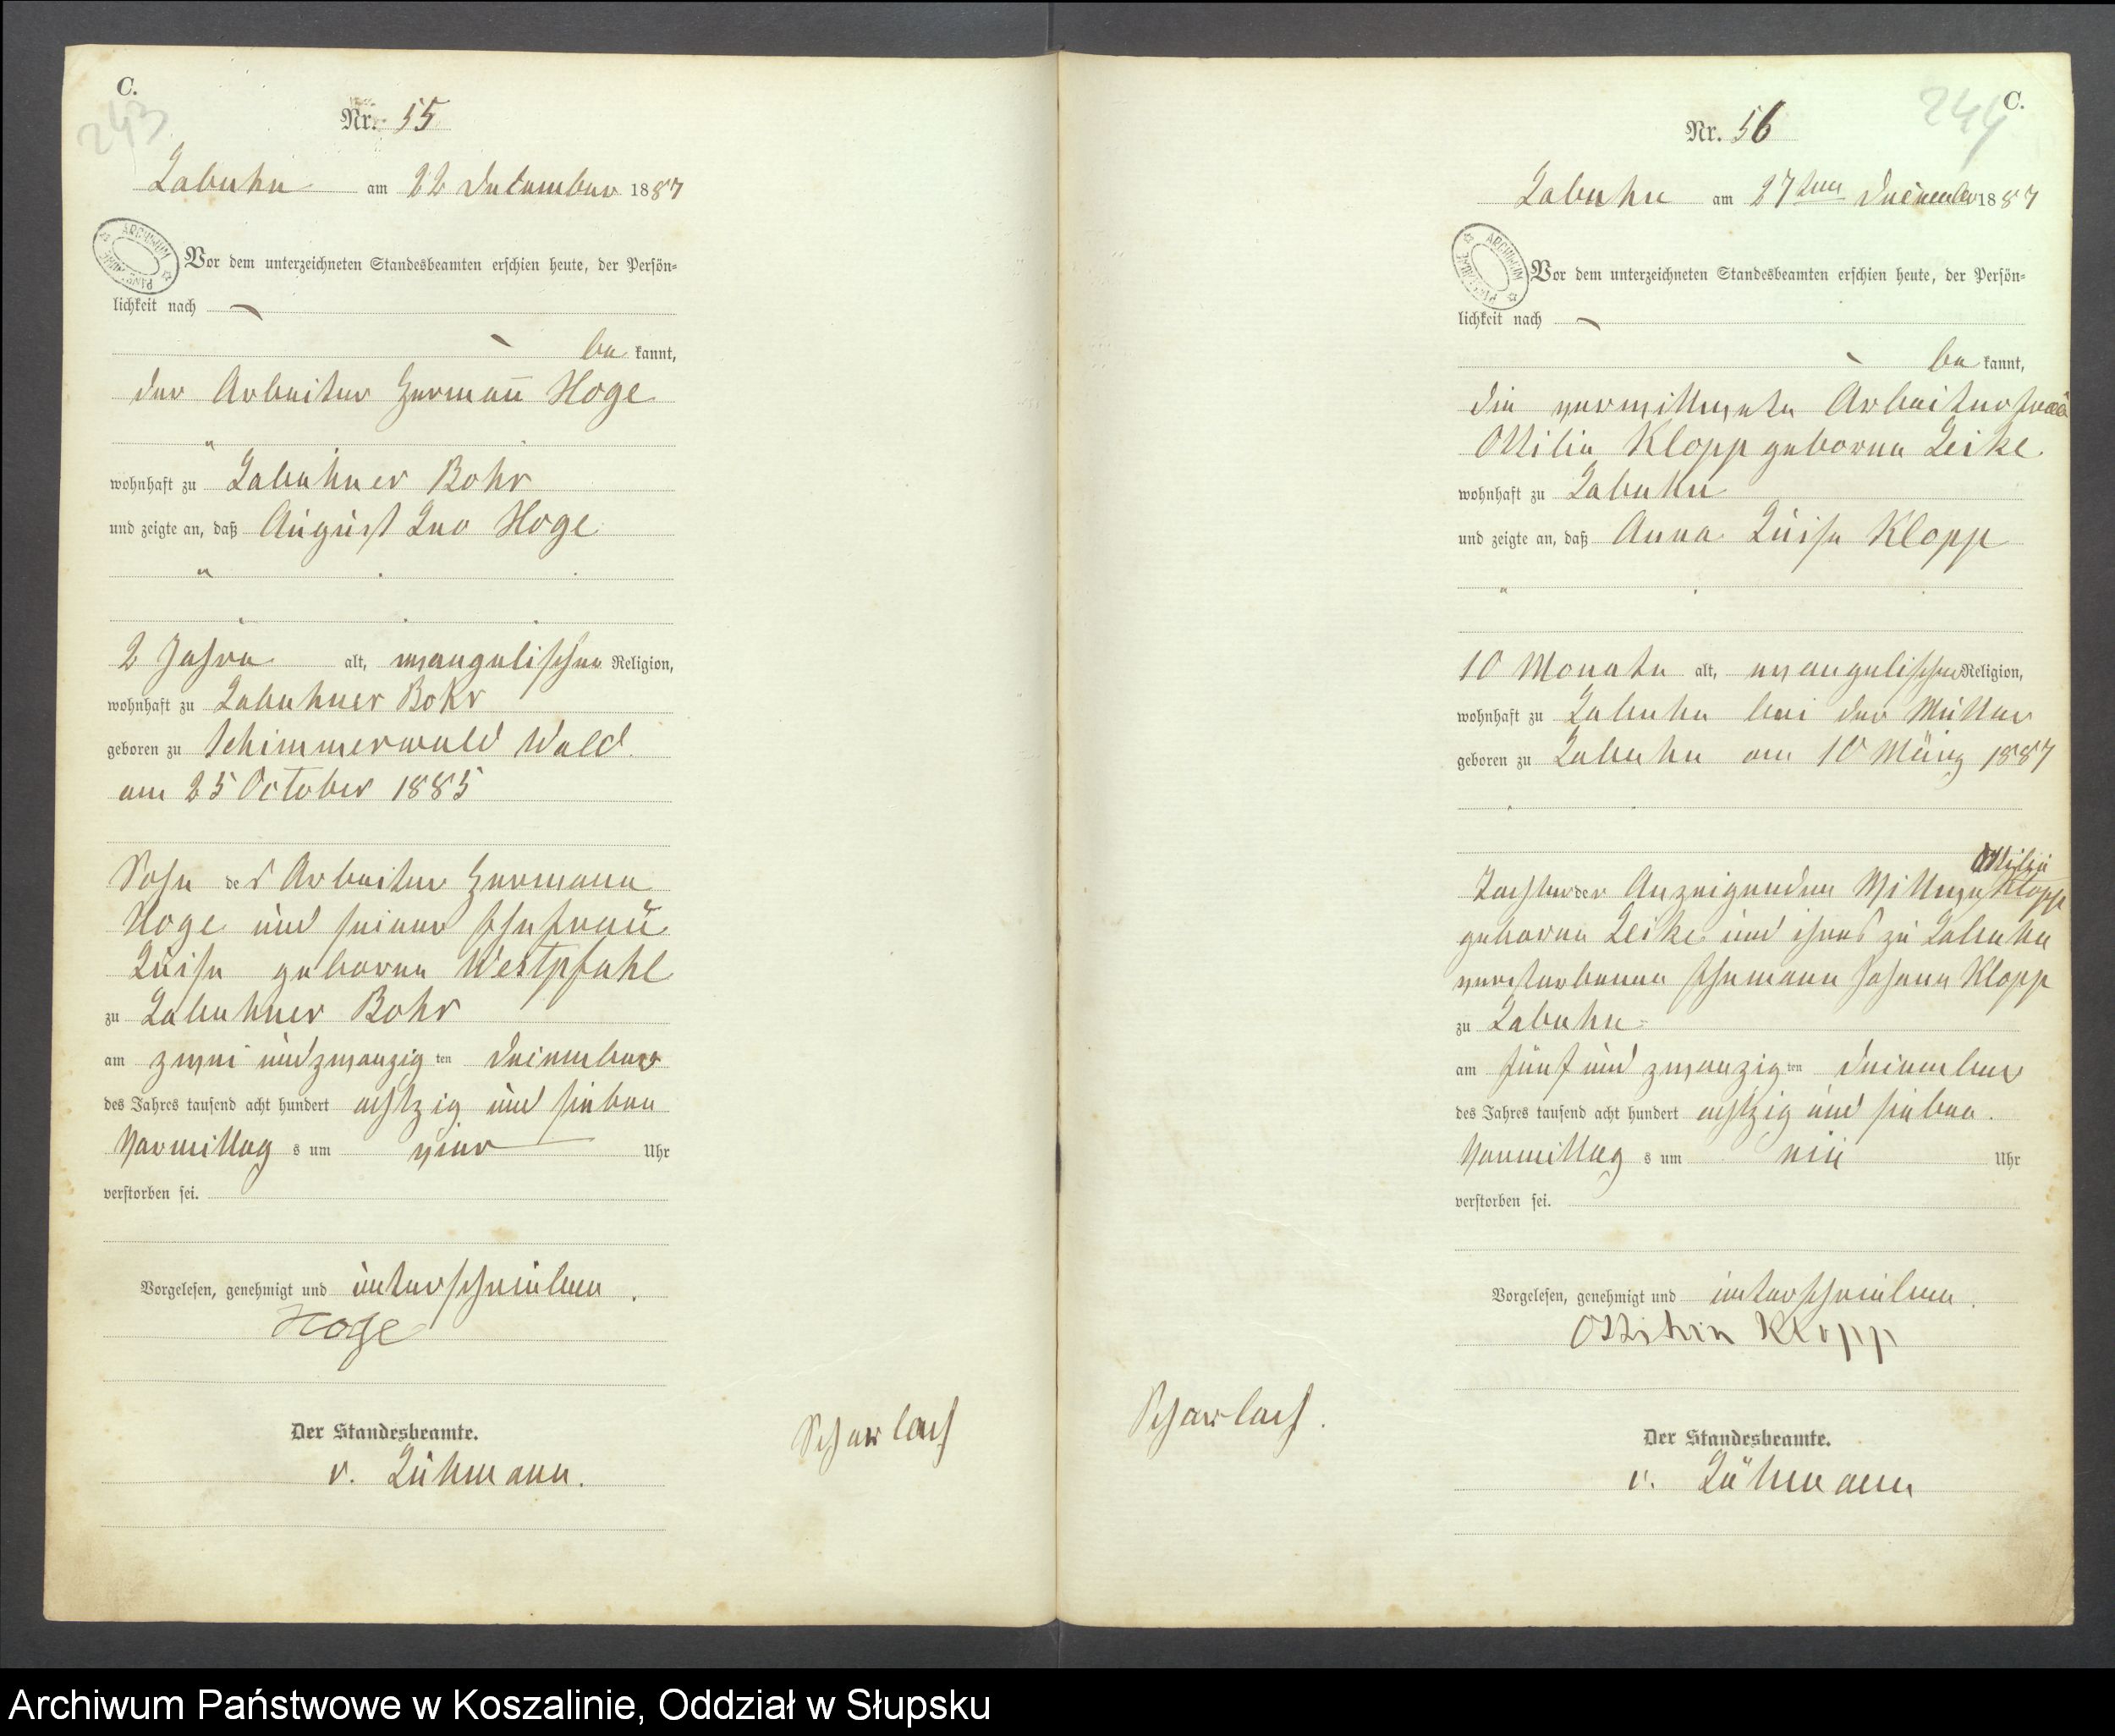 C.
243
Nr. 55
Labuhn am 22 December 1887
ARCHIWUM
Vor dem unterzeichneten Standesbeamten erschien heute, der Persön=
lichkeit nach
be kannt,
der Arbeiter Hermann̄ Hoge
wohnhaft zu Labuhner Bohr
und zeigte an, daß August Leo Hoge
2 Jahre alt, evangelischer Religion,
wohnhaft zu Labuhner Bohr
geboren zu Schimmerwald Wald
am 25 October 1885
Sohn des Arbeiter Hermann
Hoge und seiner Ehefrau
Luise geborne Westpfahl
zu Labuhner Bohr
am zwei und zwanzig ten December
des Jahres tausend acht hundert achtzig und sieben
Vormittag s um vier Uhr
verstorben sei.
Vorgelesen, genehmigt und unterschrieben.
Hoge
Der Standesbeamte.
v. Lühmann.
Scharlach
C.
244
Nr. 56
Labuhn am 27ten December 1887
ARCHIWUM
Vor dem unterzeichneten Standesbeamten erschien heute, der Persön=
lichkeit nach
be kannt,
die verwittwete Arbeiterfrau
Ottilie Klopp geborne Leike
wohnhaft zu Labuhn
und zeigte an, daß Anna Luise Klopp
10 Monate alt, evangelischer Religion,
wohnhaft zu Labuhn bei der Mutter
geboren zu Labuhn am 10 März 1887
Ottilie
Tochter der Anzeigenden Wittwe Klopp
geborne Leike und ihres zu Labuhn
verstorbenen Ehemann Johann Klopp
zu Labuhn
am fünf und zwanzig ten December
des Jahres tausend acht hundert achtzig und sieben.
Vormittag s um ein Uhr
verstorben sei.
Vorgelesen, genehmigt und unterschrieben.
Ottilie Klopp
Scharlach.
Der Standesbeamte.
v. Lühmann
Archiwum Państwowe w Koszalinie, Oddział w Słupsku